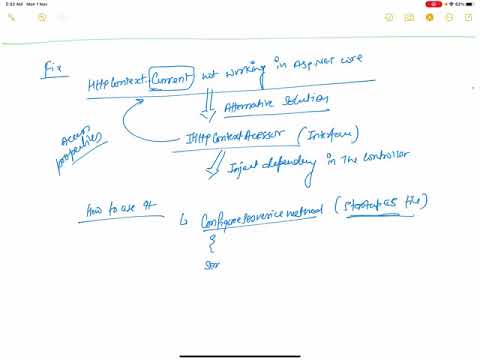 5:32 AM Mon 1 Nov
62%
Fix
HttpContext.Current not working in Asp.Net core
Alternative Solution
Access properties
IHttpContextAcessor (Interface)
Inject dependency in the controller
How to use it
ConfigureService method (startup.cs file)
{
Ser